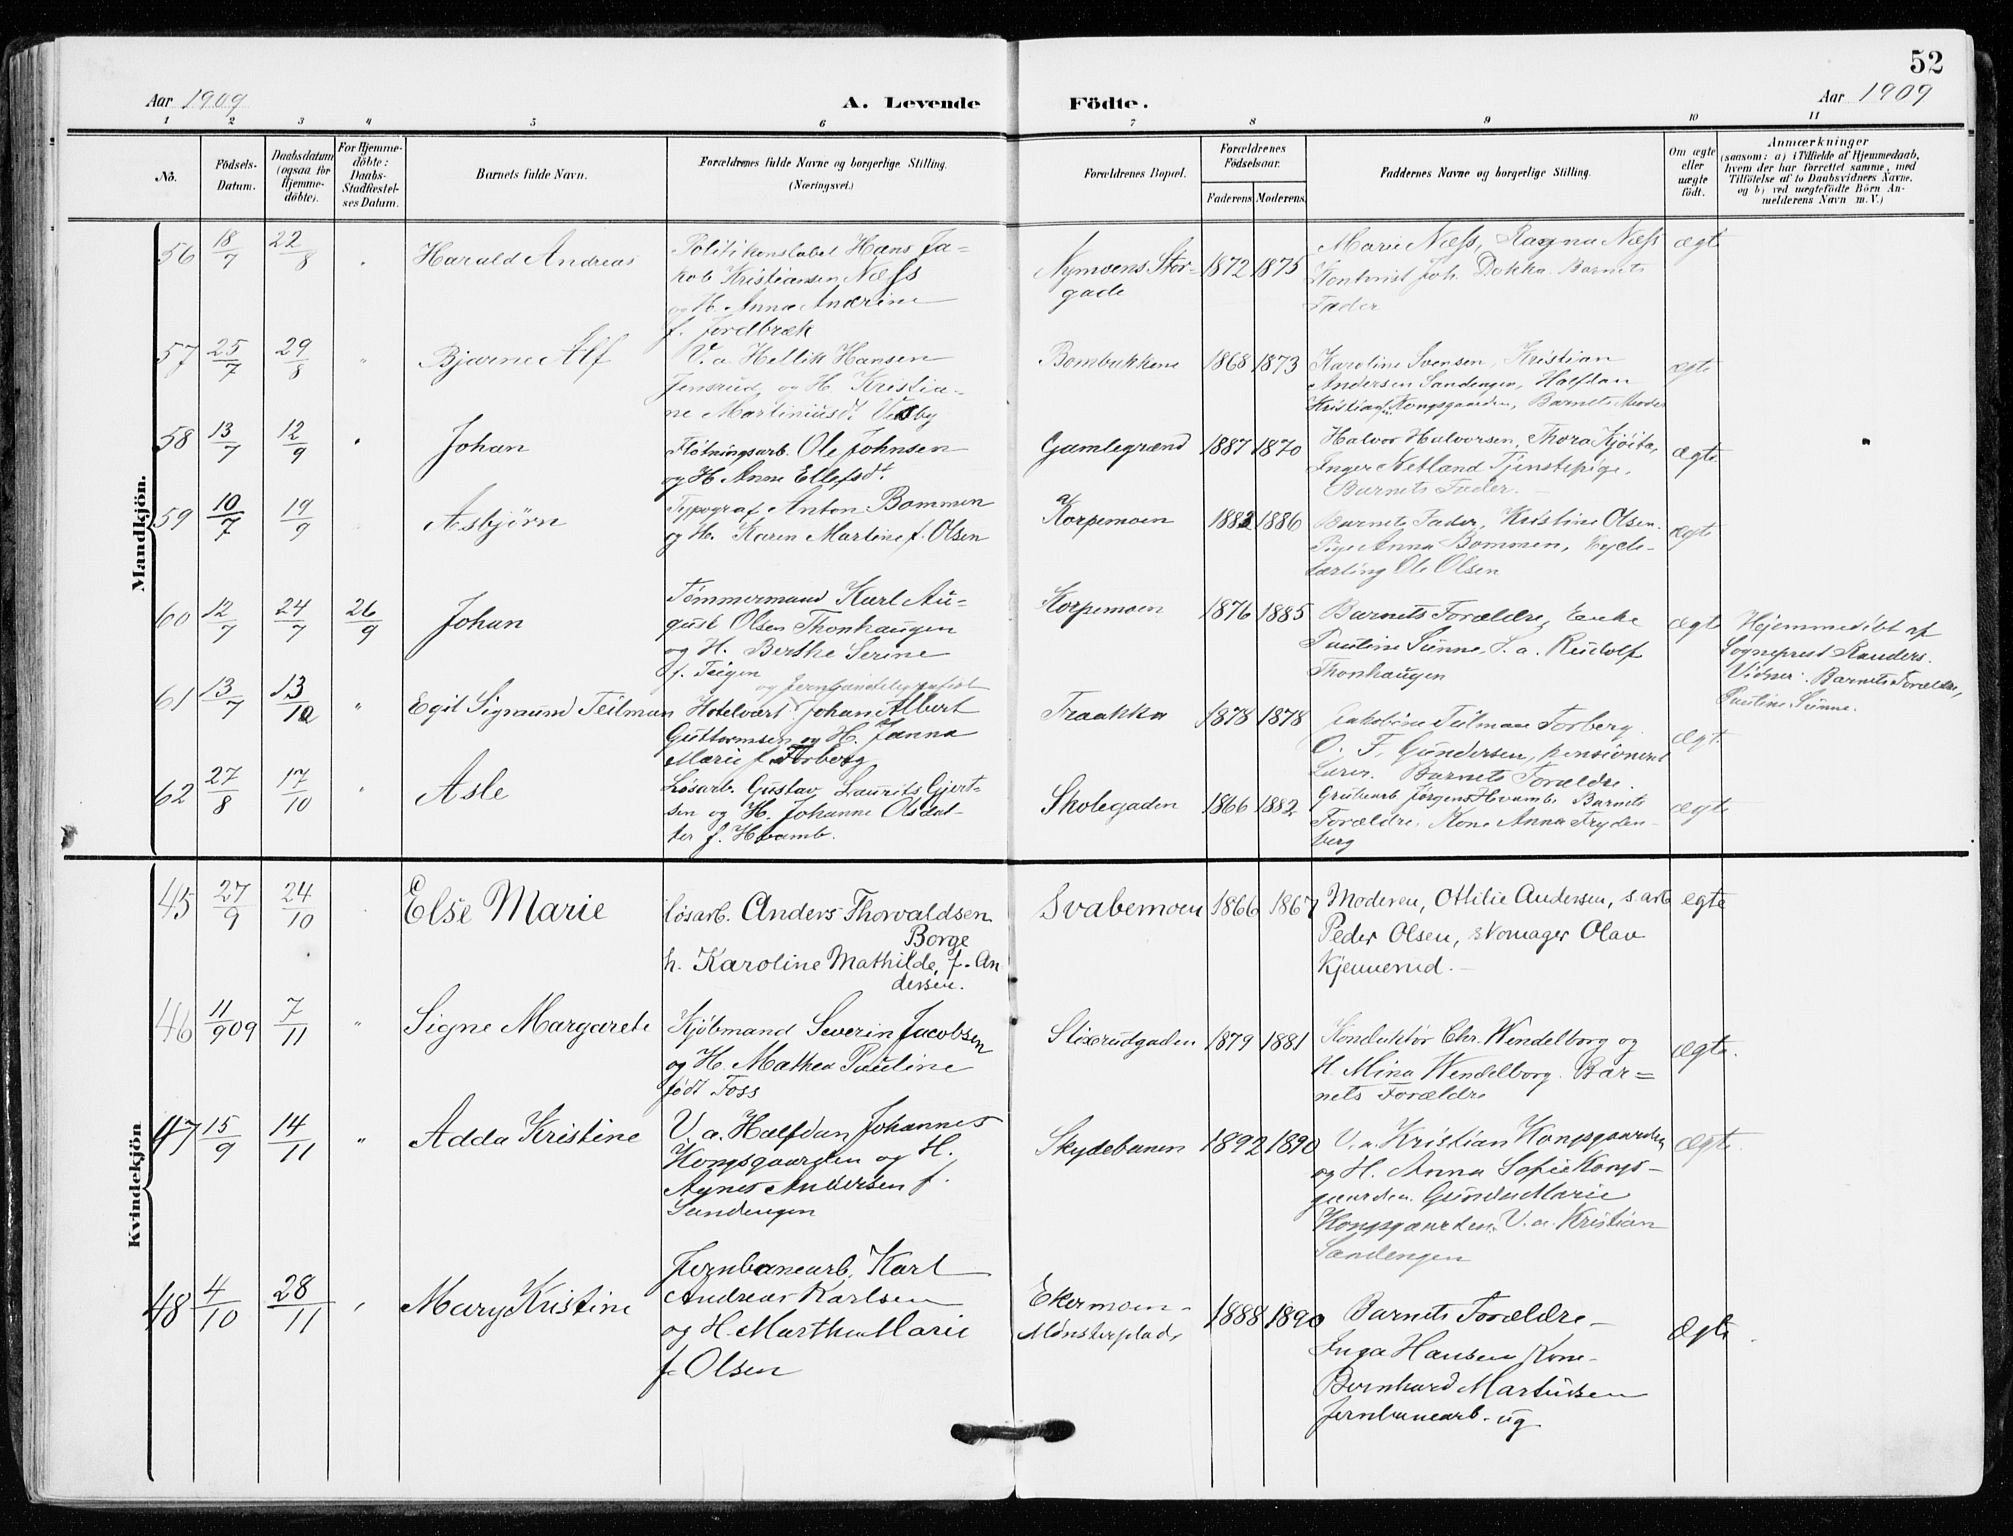 52
Aar 1909
A. Levende Födte.
Aar 1909
1 2 3 4 5 6 7 8 9 10 11
No.
Födsels-
Datum.
Daabsdatum
(ogsaa for
Hjemme-
döbte).
For Hjemme-
döbte:
Daabs-
Stadfæstel-
ses Datum.
Barnets fulde Navn.
Forældrenes fulde Navne og borgerlige Stilling.
(Næringsvei.)
Forældrenes Bopæl.
Forældrenes
Födselsaar.
Faderens. Moderens.
Faddernes Navne og borgerlige Stilling.
Om ægte
eller
uægte
födt.
Anmærkninger
(saasom: a) i Tilfælde af Hjemmedaab,
hvem der har forrettet samme, med
Tilföielse af to Daabsvidners Navne.
og b) ved uægtefödte Börn An-
melderens Navn m. V.)
Mandkjön.
56 18/7 22/8 Harald Andreas
Politikonstabel Hans Ja-
kob Kristiansen Næss
og H. Anna Andrine
f. Jordbræk
Nymoens Stor-
gade
1872 1875
Marie Næss, Ragna Næss
Kontorist Joh. Dokka. Barnets
Fader
ægte
57 25/7 29/8 " Bjarne Alf
V. a. Hellik Hansen
Jensrud og H. Kristia-
ne Martiniusdt. Visby
Bombukkene
1868 1873
Karoline Svensen, Kristian
Andersen Sandengen, Halfdan
Kristians. Kongsgaarden, Barnets Moder
ægte
58 13/7 12/9 Johan
Fløtningsarb. Ole Johnsen
og H. Anne Ellefsdt.
Gamlegrænd
1887 1870
Halvor Halvorsen, Thora Kjøita,
Inger Netland Tjenstepige,
Barnets Fader.
ægte
59 10/7 19/9 Asbjørn
Typograf Anton Bommen
og H. Karen Martine f. Olsen
Korpemoen
1883 1886
Barnets Fader, Kristine Olsen.
Pige Anna Bommen,
lærling Ole Olsen
ægte
60 12/7 24/7 26/9 Johan
Tømmermand Karl Au-
gust Olsen Thonhaugen
og H. Berthe Serine
f. Teigen
Korpemoen
1876 1885
Barnets Forældre, Enke
Pauline Sünne, S. a. Rudolf
Thonhaugen
ægte
Hjemmedøbt af
Sogneprest Randers.
Vidner: Barnets Forældre,
Pauline Sünne.
61 13/7 13/10 " Egil Sigmund Teilman
og Jernbanetelegrafist
Hotelvært Johan Albert
Guttormsen og H. Janna
Marie f. Forberg
Traakka
1878 1878
Jakobine Teilman Forberg.
O. F. Gundersen, pensioneret
Lærer. Barnets Forældre.
ægte
62 27/8 17/10 " Asle
Løsarb. Gustav Laurits Gjert-
sen og H. Johanne Olsdat-
ter f. Hvamb.
Skolegaden
1866 1882
Grubearb Jørgen Hvamb. Barnets
Forældre. Kone Anna Fryden-
berg
ægte
Kvindekjön
45 27/9 24/10 Else Marie
løsarb. Anders Thorvaldsen
Borge
h. Karoline Mathilde, f. An
dersen.
Svabemoen
1866 1867
Moderen, Ottilie Andersen, s. arb
Peder Olsen, skomager Olav
Kjennerud.
egte
46 11/9 09 7/11 " Signe Margarete
Kjøbmand Severin Jacobsen
og H. Mathea Pauline
født Foss
Stixrudgaden
1879 1881
Konduktør Chr. Wendelborg og
H. Mina Wendelborg. Bar=
nets Forældre
ægte.
47 15/9 14/11 " Adda Kristine
V. a. Halfdan Johannes
Kongsgaarden og H.
Agnes Andersen f.
Sandengen
Skydebanen
1892 1890
V. a. Kristian Kongsgaarden
og H. Anna Sofie Kongs-
gaarden. Gunda Marie
Kongsgaarden. V. a. Kristian
Sandengen
ægte.
48 4/10 28/11 " Mary Kristine
Jernbanearb. Karl
Andreas Karlsen
og H. Marthea Marie
f. Olsen
Ekermoen-
Mønsterplads
1888 1890
Barnets Forældre-
Inga Hansen Kone-
Bernhard Martinsen
Jernbanearb. ug
Ægte.